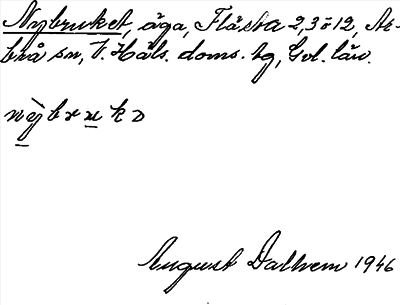 Nybruket, äga, Flästa 2, 3 o 12, Ar-
brå sn, V. Häls. doms. tg, Gvl. län.
nỳbrukə
August Dalhem 1946